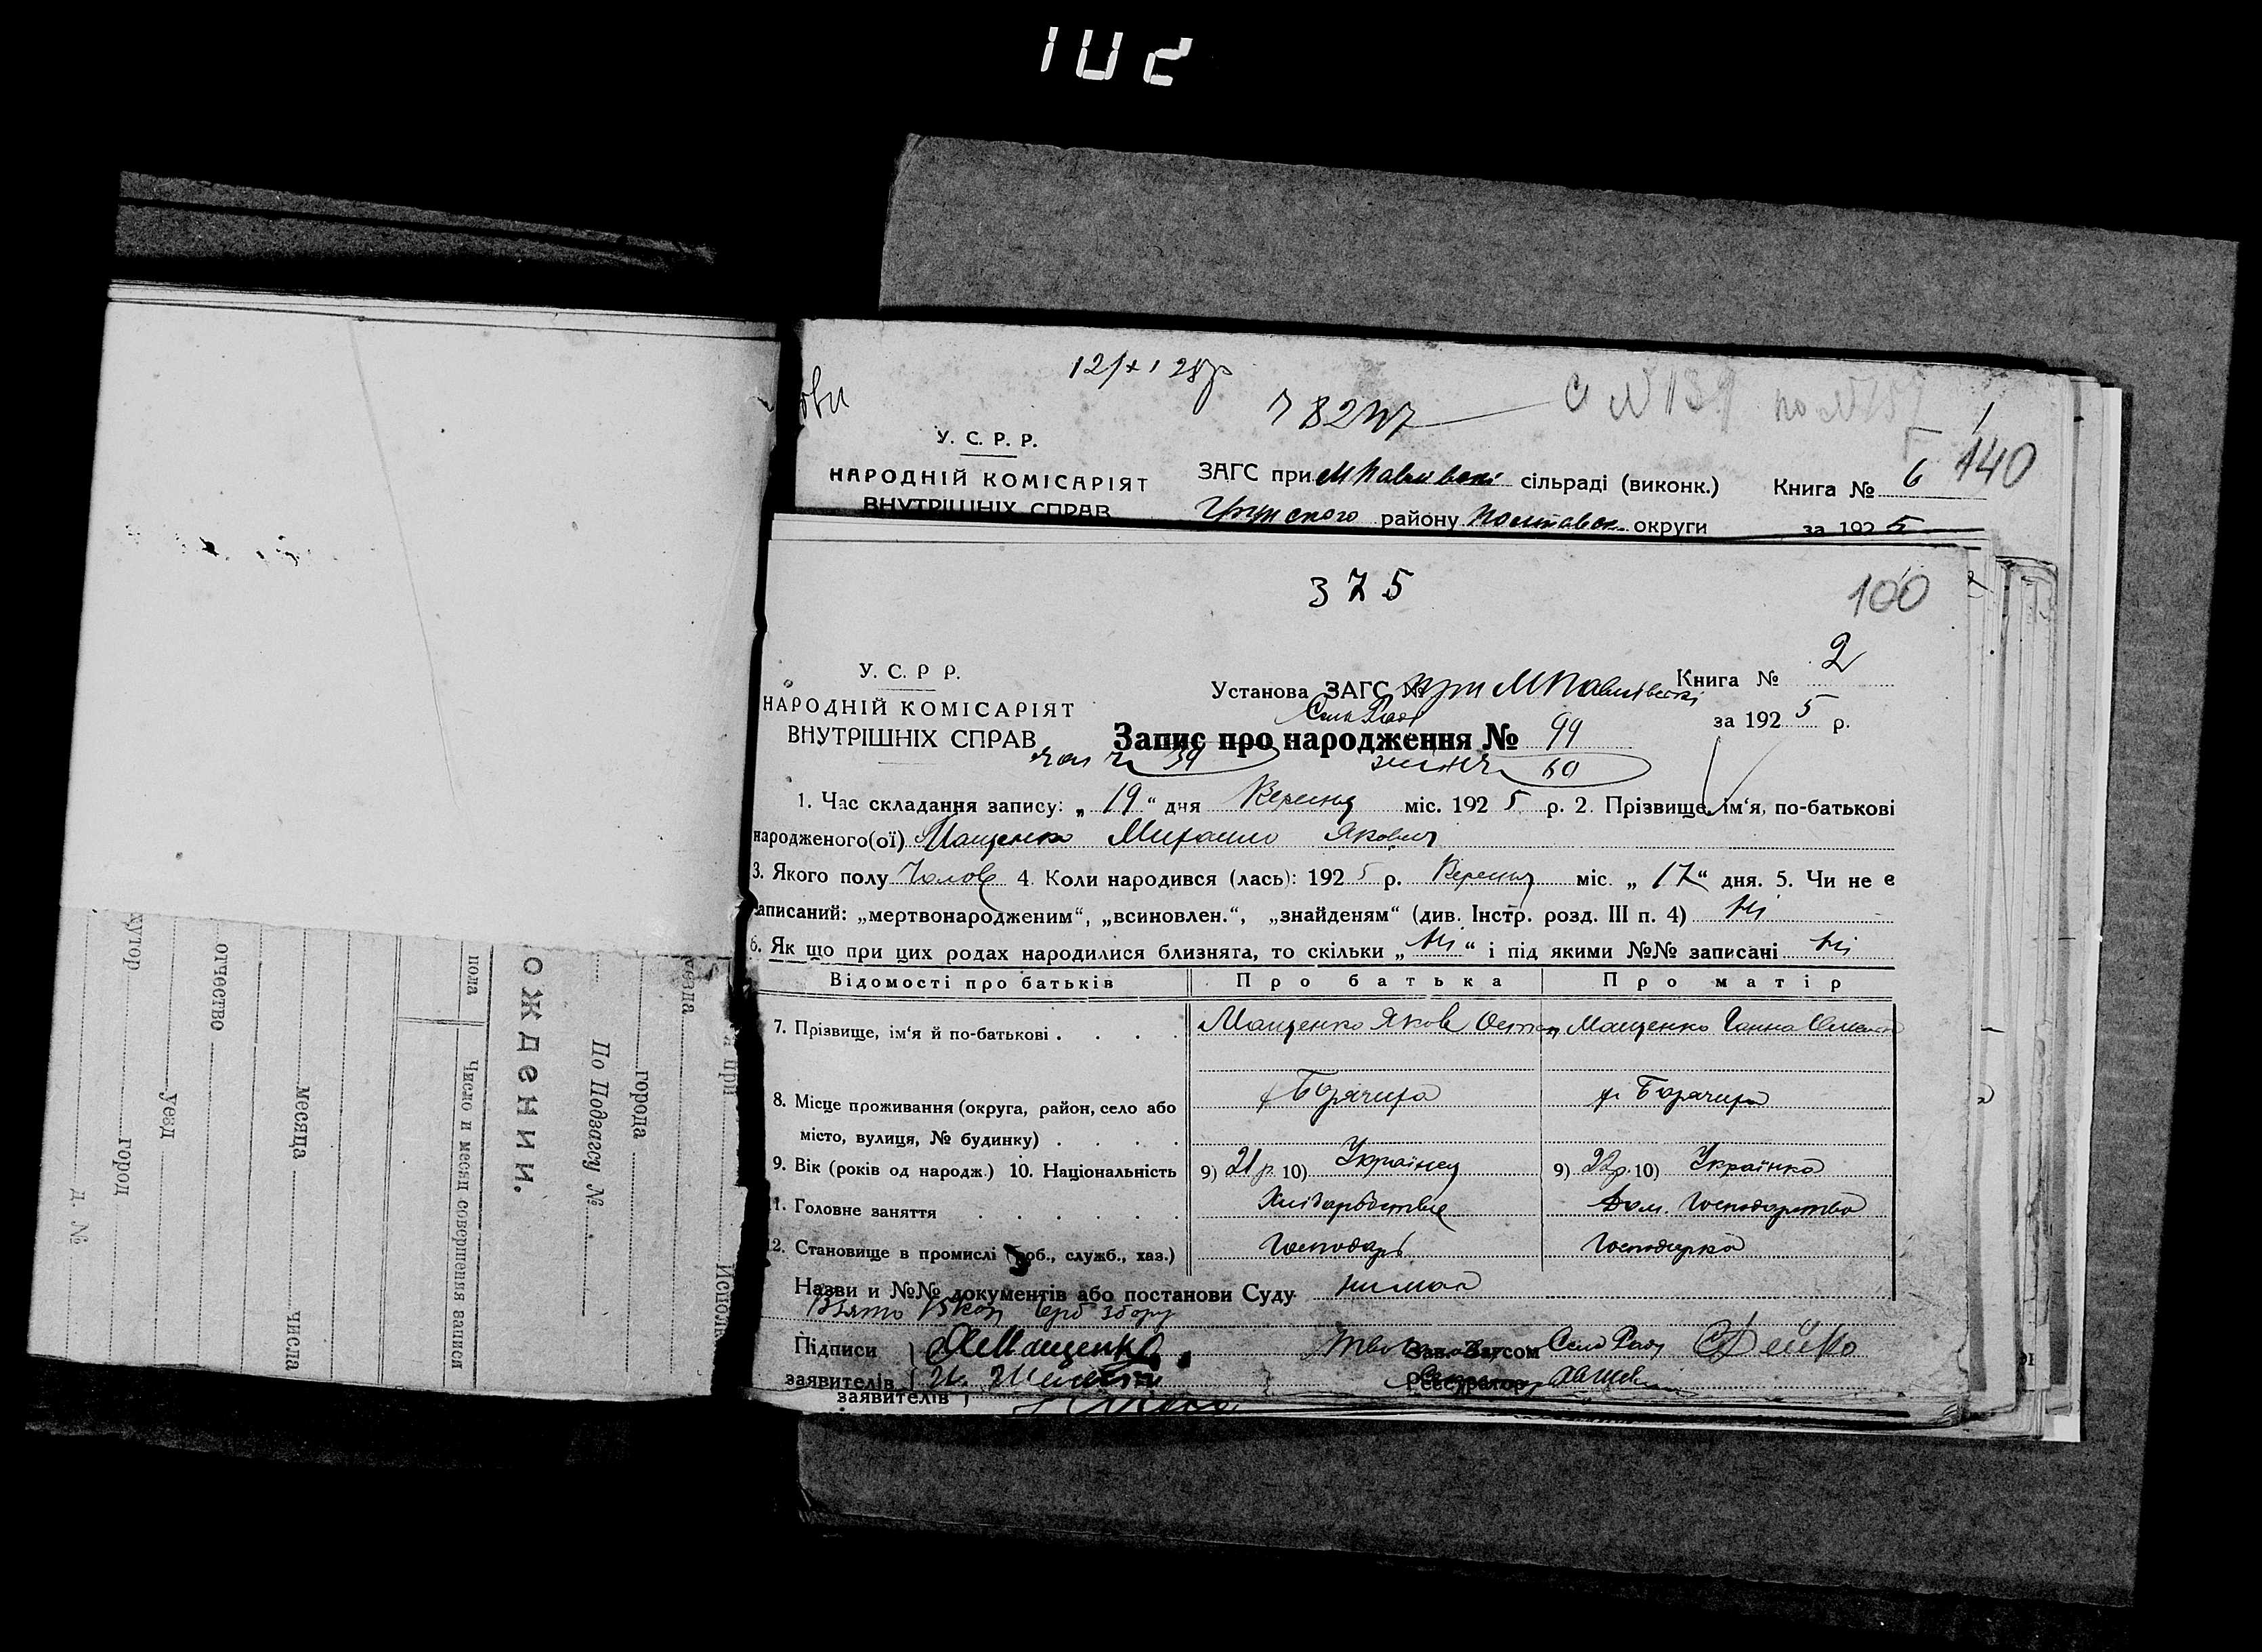 102
121 х 1 28р
782
с №139 по №157
1
140
У. С. Р. Р.
НАРОДНІЙ КОМІСАРІЯТ
ВНУТРІШНІХ СПРАВ
ЗАГС при МПавлівскі сільраді (виконк.)
Книга № 6
району Полтавск. округи
за 1925
375
100
У. С. Р Р.
НАРОДНІЙ КОМІСАРІЯТ
ВНУТРІШНІХ СПРАВ
Установа ЗАГС № при МПавлівскі
Сель Раді
Книга № 2
за 1925 р.
Запис про народження № 99
чол 39 жіноч 60
1. Час складання запису: „ 19 “ дня Вересня міс. 1925 р. 2. Прізвище, ім‘я, по-батькові
народженого(ої) Мащенко Михаило Якович
3. Якого полу Чолов 4. Коли народився (лась): 1925 р. Вересня міс. „ 17 “ дня. 5. Чи не є
записаний: „мертвонародженим“, „всиновлен.“, „знайденям“ (див. Інстр. розд. III п. 4) Ні
6. Як що при цих родах народилися близнята, то скільки „ Ні “ і під якими №№ записані Ні
Відомості про батьків
Про батька
Про матір
7. Прізвище, ім‘я й по-батькові . . . .
Мащенко Яков Остап
Мащенко Ганна
8. Місце проживання (округа, район, село або
місто, вулиця, № будинку) . . . .
х Борячиха
х. Борячиха
9. Вік (років од народж.) 10. Національність
9) 21 р. 10) Українец
9) 22р. 10) Українка
11. Головне заняття . . . . . .
Хліборобствує
Дом. Господарство
12. Становище в промислі (роб., служб., хаз.)
Господарь
Господарка
Назви и №№ документів або постанови Суду нимає
Взято 15 коп герб збору
Підписи
заявителів
Я Мащенко
Зав. Загсом
Сель Раді
Реєстратор
заявителів
ождении.
По Подзагсу №
города
уезда
пола
Число и месяц совершения записи
отчество
месяца
числа
хутор
уезд
город
д. №